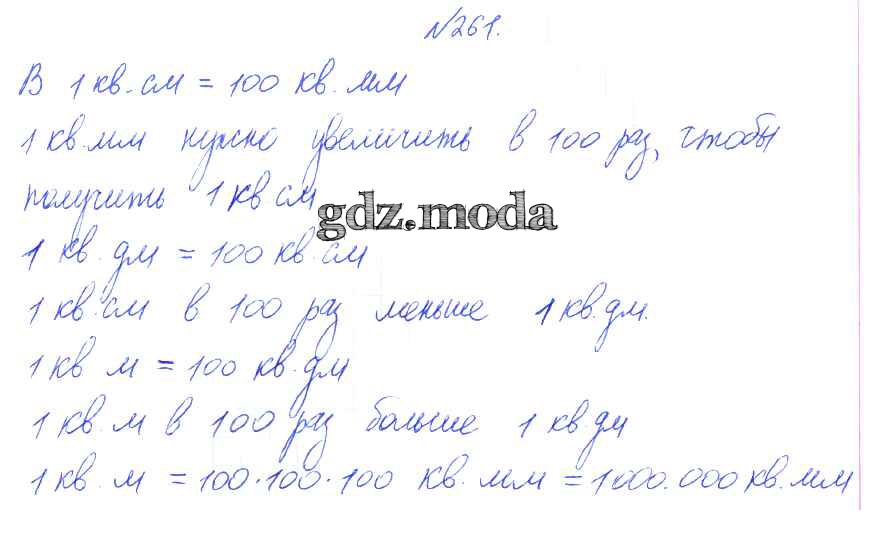 №261.
В 1 кв.см = 100 кв.мм
1 кв.мм нужно увеличить в 100 раз, чтобы
получить 1 кв см
gdz.moda
1 кв. дм = 100 кв.см
1 кв.см в 100 раз меньше 1 кв.дм.
1 кв м = 100 кв.дм
1 кв.м в 100 раз больше 1 кв дм
1 кв. м = 100·100·100 кв. мм = 1000.000 кв.мм